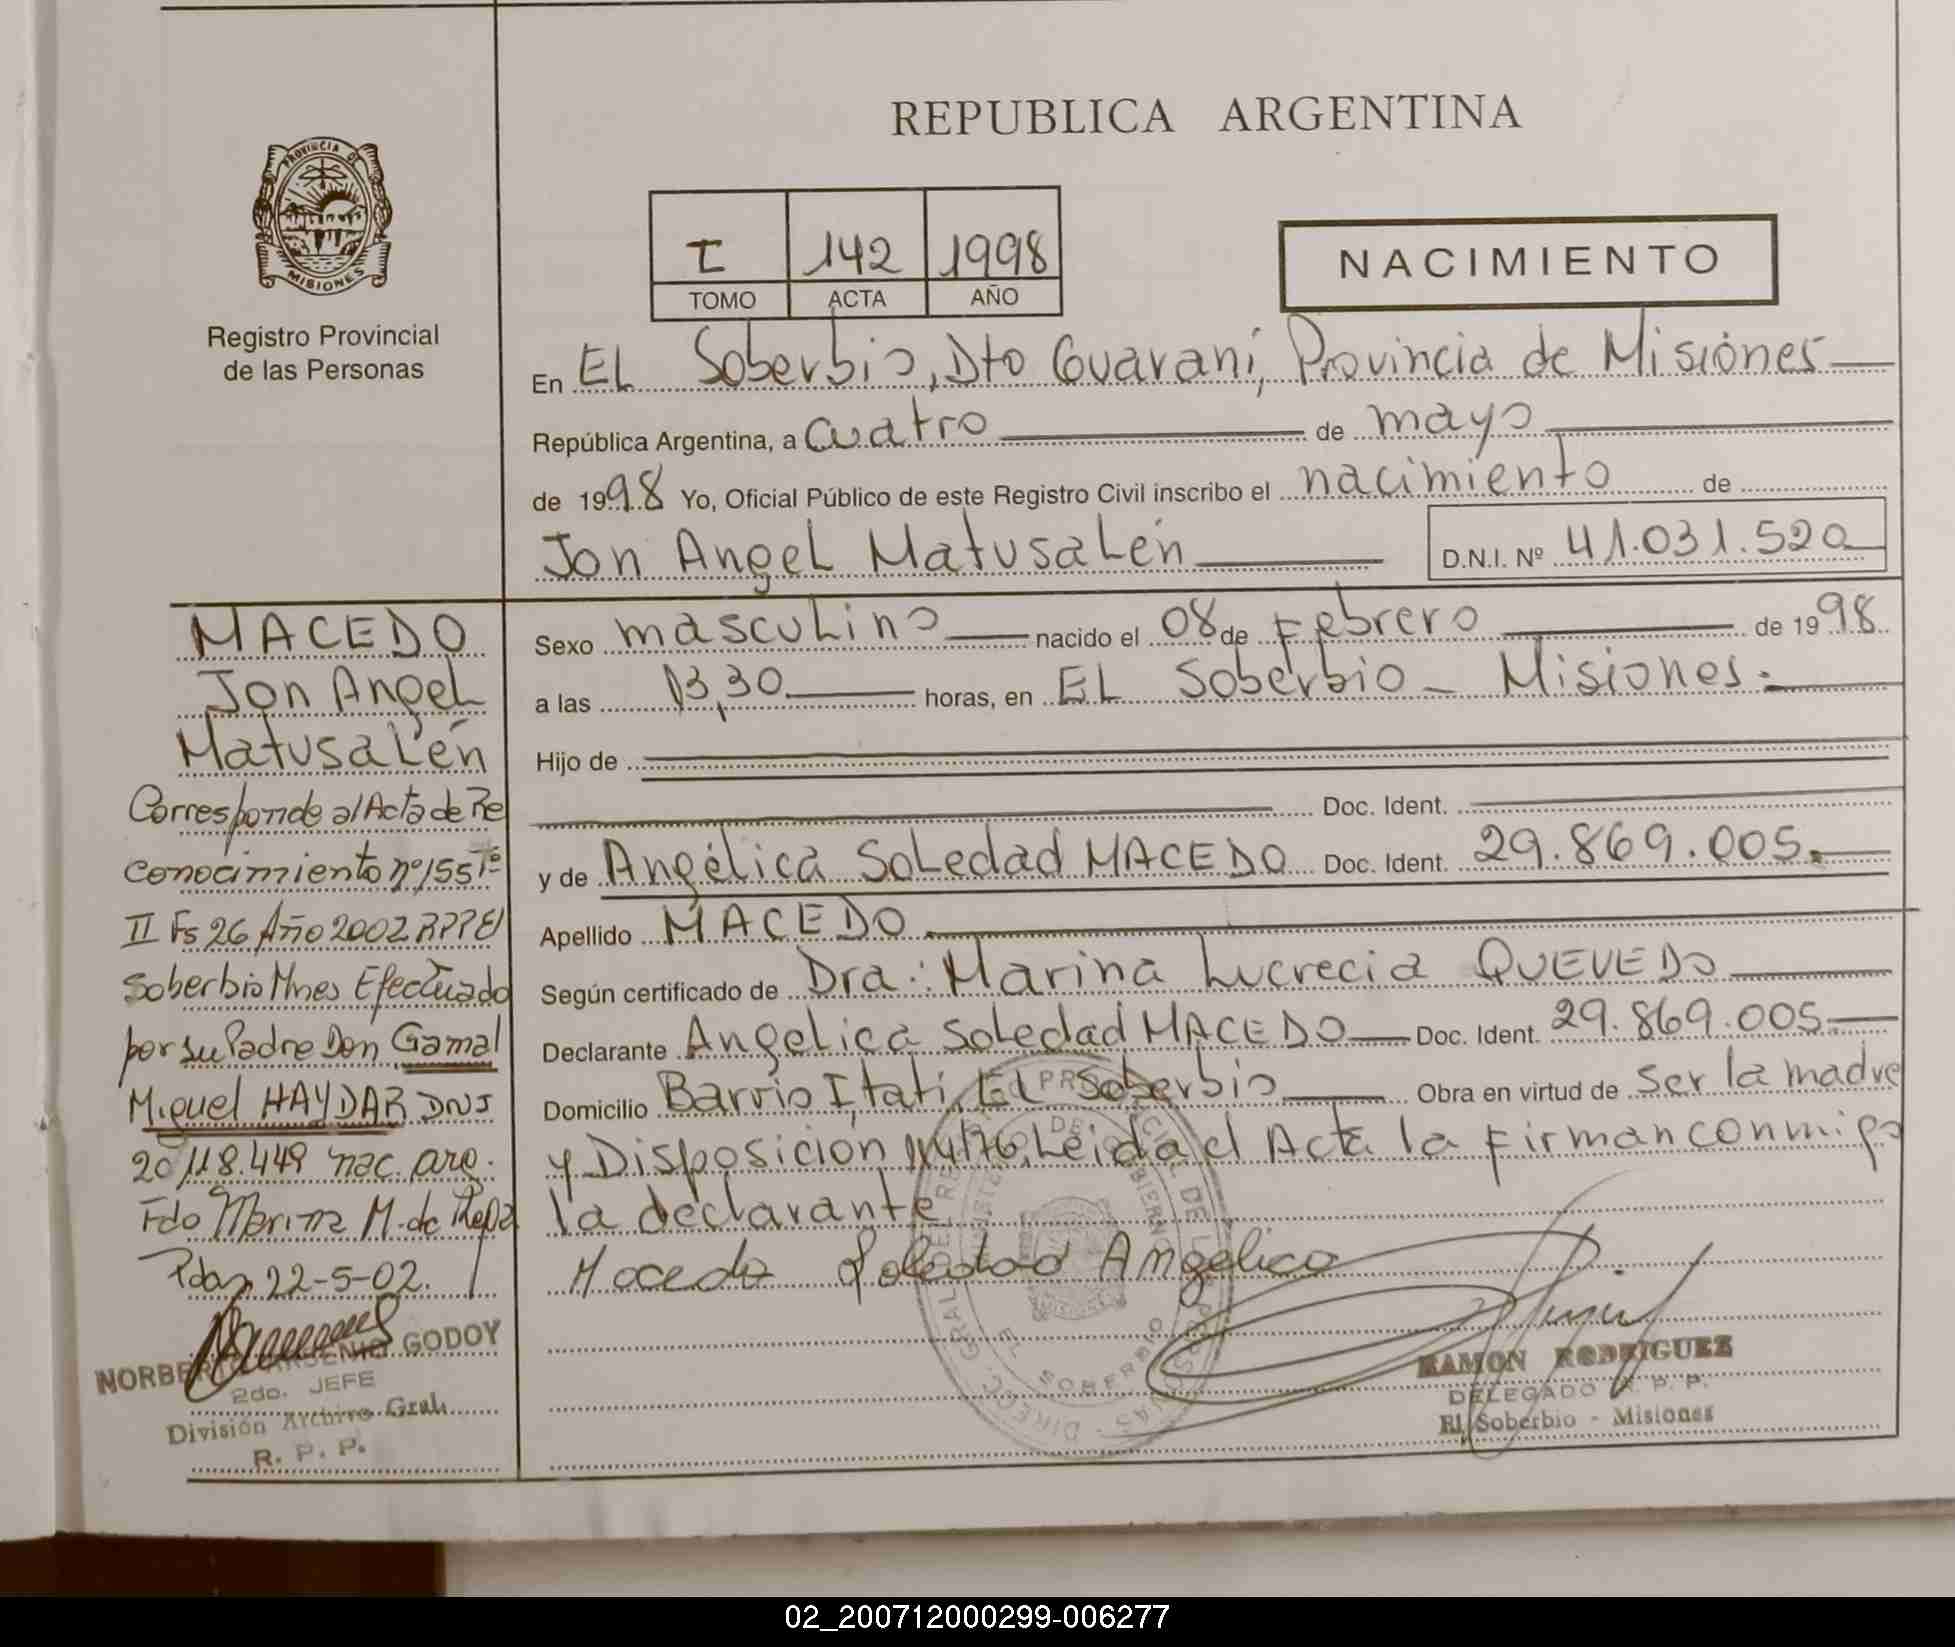 PROVINCIA DE
MISIONES
Registro Provincial
de las Personas
REPUBLICA ARGENTINA
I 142 1998
TOMO ACTA AÑO
NACIMIENTO
En EL Soberbio, Dto Guaraní, Provincia de Misiones
República Argentina, a cuatro de mayo
de 1998 Yo, Oficial Público de este Registro Civil inscribo el nacimiento de
Jon Angel Matusalén D.N.I. Nº 41.031.520
Sexo masculino nacido el 08 de Febrero de 1998
a las 13,30 horas, en EL Soberbio - Misiones.
Hijo de
Doc. Ident.
y de Angélica Soledad MACEDO Doc. Ident. 29.869.005.
Apellido MACEDO
Según certificado de Dra: Marina Lucrecia QUEVEDO
Declarante Angelica Soledad MACEDO Doc. Ident. 29.869.005
Domicilio Barrio Itatí, El Soberbio Obra en virtud de ser la madre
y Disposicion 114/76, Leida el Acta la firman conmigo
la declarante
Macedo Soledad Angelica
RAMON RODRIGUEZ
DELEGADO R. P. P.
El Soberbio - Misiones
MACEDO
Jon Angel
Matusalén
Corresponde al Acta de Re
conocimiento nº 155 Tº
II Fs 26 Año 2002 RPP El
Soberbio Mnes Efectuado
por su Padre Don Gamal
Miguel HAYDAR DNI
20.118.449 nac. arg.
Fdo Marina M. de
Pdas 22-5-02.
NORBERTO ARSENIO GODOY
2do. JEFE
División Archivo Gral.
R. P. P.
02_200712000299-006277